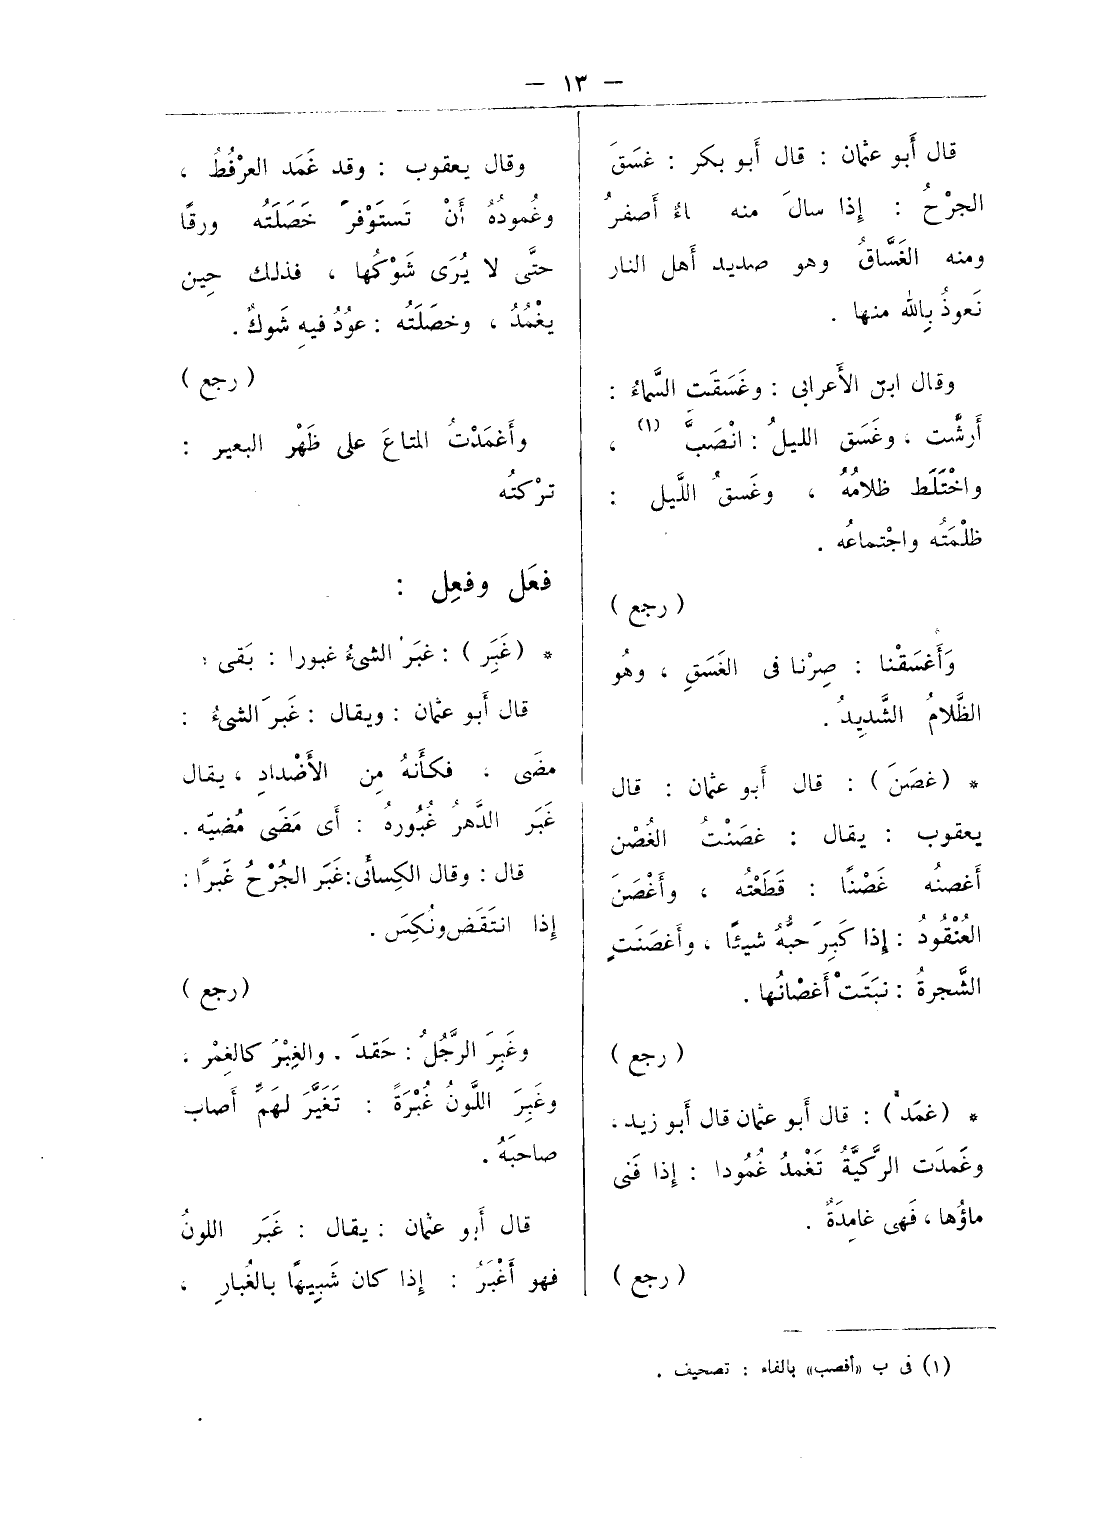 — ١٣ —
قال أَبو عثمان : قال أَبو بكر : غسَقَ
الجرْحُ : إِذا سالَ منه ماءٌ أَصفرُ
ومنه الغَسَّاقُ وهو صديد أَهل النار
نَعوذُ بِالله منها .
وقال ابنُ الأَعرابى : وغَسَقَت السَّماءُ :
أَرشَّت ، وغَسَق الليلُ : انْصَبَّ (١) ،
واخْتَلَط ظلامُهُ ، وغَسقُ اللَّيل :
ظلْمَتُه واجْتماعُه .
( رجع )
وَأَغسَقْنا : صِرْنا فى الغَسَقِ ، وهُو
الظَّلامُ الشَّدِيدُ .
* ( غصَنَ ) : قال أَبو عثمان : قال
يعقوب : يقال : غصَنْتُ الغُصْن
أَغصنُه غَصْنًا : قَطَعْتُه ، وأَغْصَنَ
العُنْقُودُ : إِذا كَبِرَ حبُّهُ شيئًا ، وأَغصَنَتِ
الشَّجرةُ : نبَتَتْ أَغصْانُها .
( رجع )
* ( غمَد ) : قال أَبو عثمان قال أَبو زيد ،
وغَمدَت الرَّكيَّةُ تَغْمدُ غُمُودا : إِذا فَنى
ماؤُها ، فَهى غامِدَةٌ .
( رجع )
وقال يعقوب : وقد غَمَد العرْفُطُ ،
وغُمودُهُ أَنْ تَستَوْفرَ خَصَلَتُه ورقًا
حتَّى لا يُرَى شَوْكُها ، فذلك حِين
يغْمُدُ ، وخصَلَتُه : عوُدُ فيهِ شَوكٌ .
( رجع )
وأَغمَدْتُ المتاعَ على ظَهْر البعير :
تركتُه
فعَل وفعِل :
* ( غَبَِر ) : غبَرَ الشىءُ غبورا : بَقى ،
قال أَبو عثمان : ويقال : غَبرَ الشىءُ :
مضَى ، فكأَنهُ مِن الأَضْدادِ ، يقال
غَبَر الدَّهرُ غُبُورهُ : أَى مَضَى مُضيّه .
قال : وقال الكِسائى : غَبَر الجُرْحُ غَبرًا :
إِذا انتَقَض ونُكِسَ .
( رجع )
وغَبِرَ الرَّجُلُ : حَقدَ . والغِبْرُ كالغِمْر ،
وغَبِرَ اللَّونُ غُبْرَةً : تَغَيَّرَ لهَمٍّ أَصاب
صاحبَهُ .
قال أَبو عثمان : يقال : غَبَر اللونُ
فهو أَغْبَرُ : إِذا كان شَبِيهًا بالغُبارِ ،
(١) فى ب «أفصب» بالفاء : تصحيف .